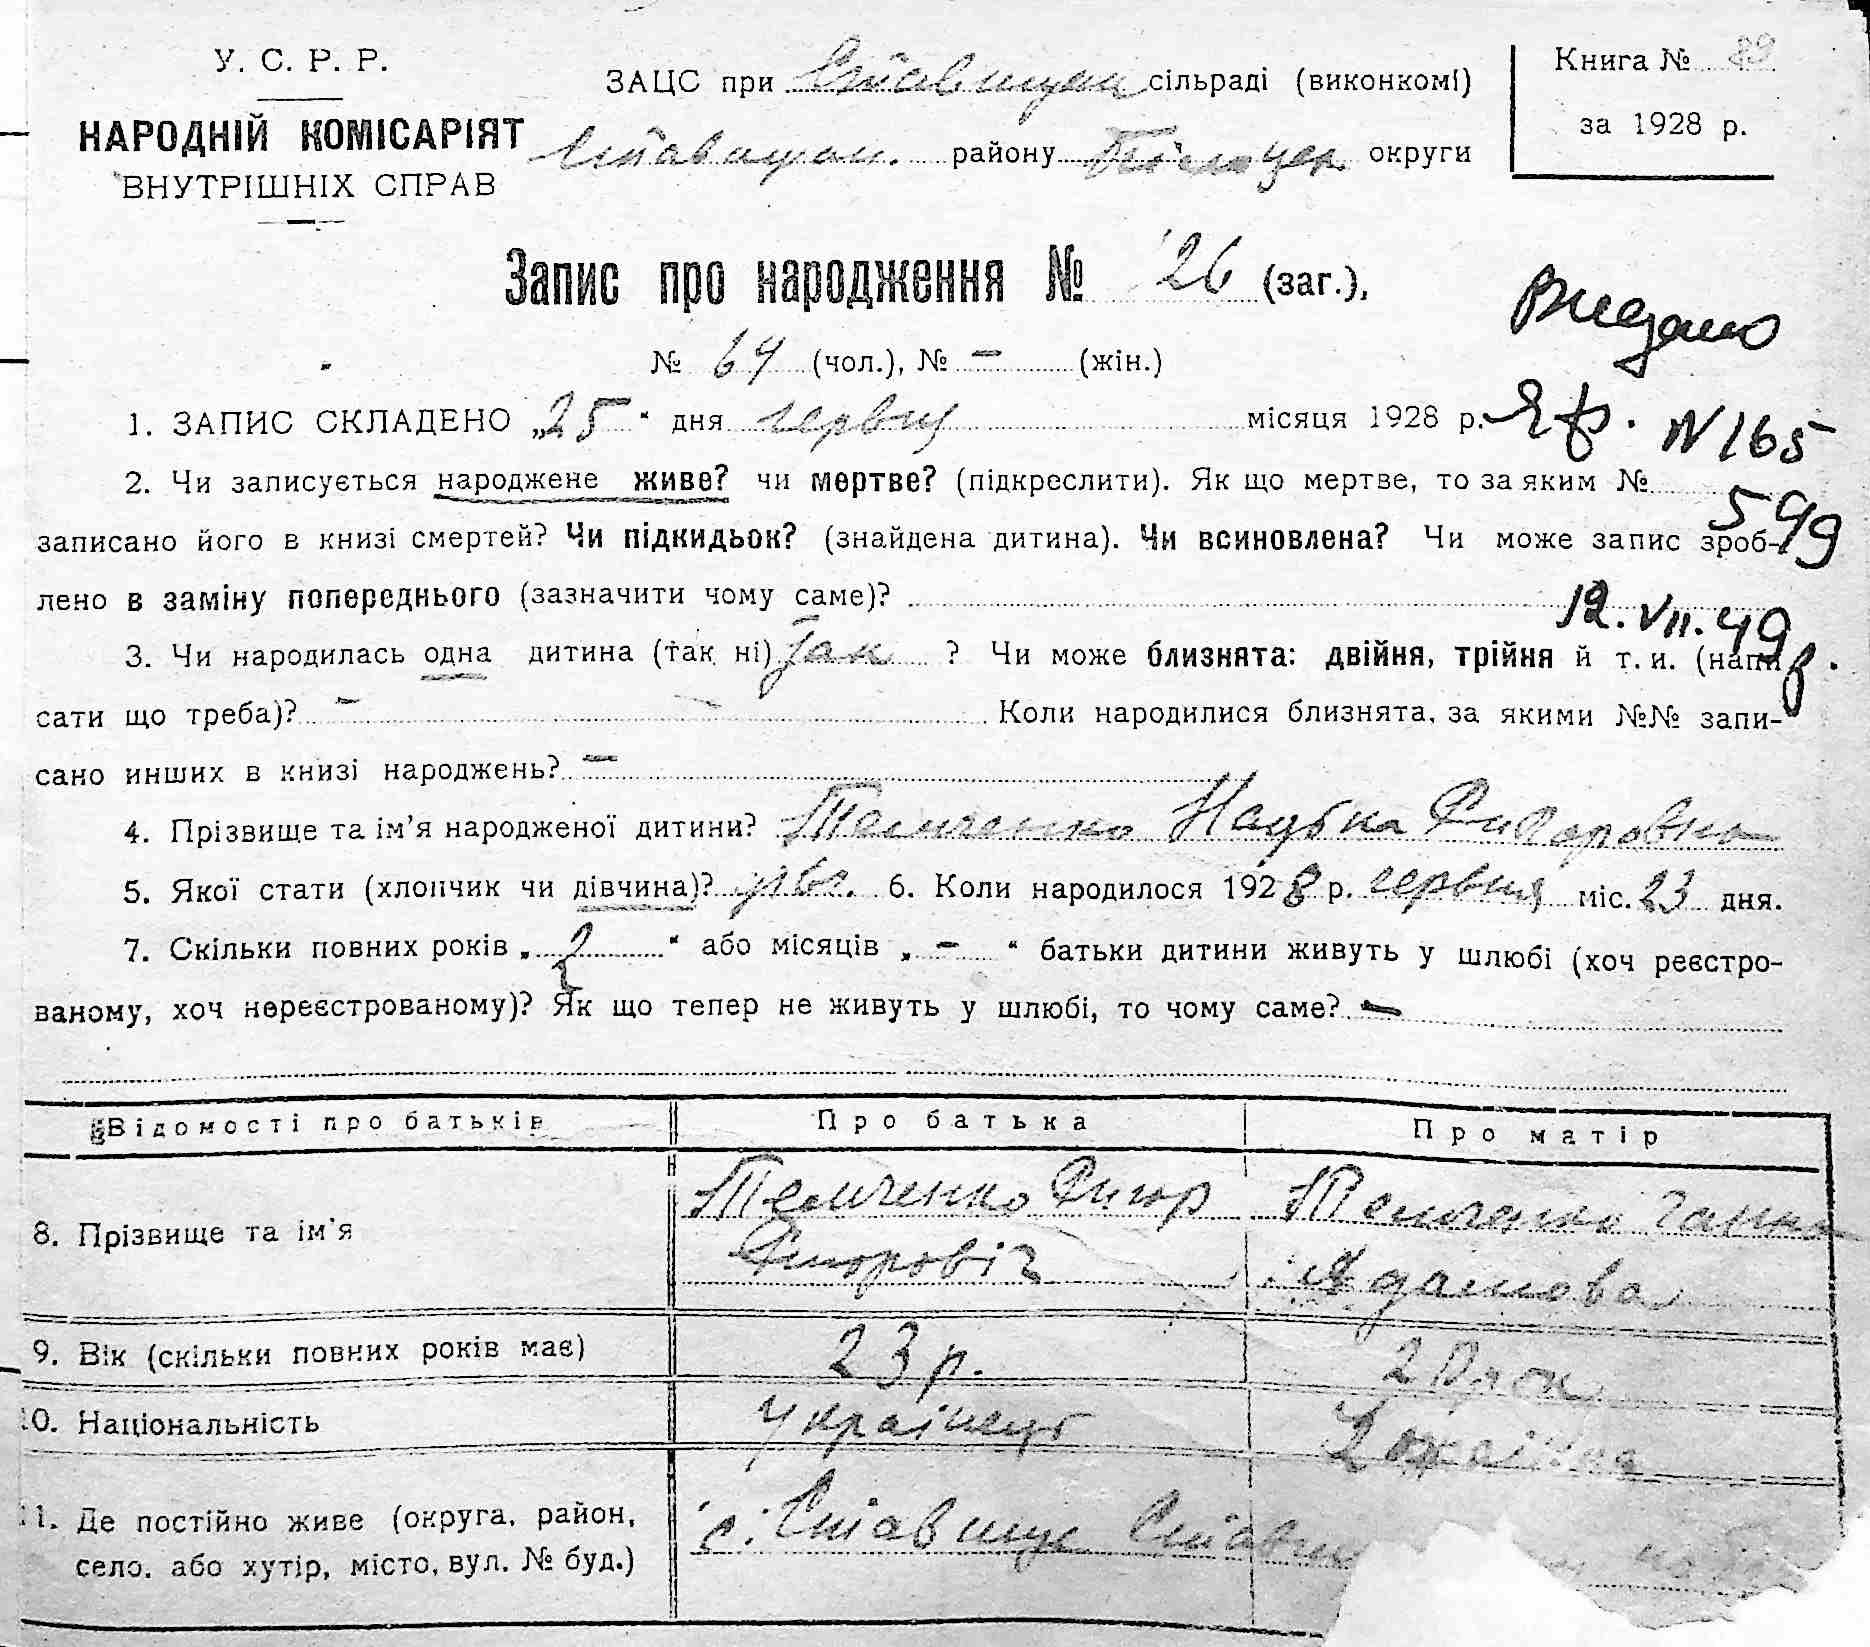 У. С. Р. Р.
НАРОДНІЙ КОМІСАРІЯТ
ВНУТРІШНІХ СПРАВ
ЗАЦС при Ставищан сільраді (виконкомі)
Ставищан. району округи
Книга № 89
за 1928 р.
Запис про народження № 26 (заг.),
№ 64 (чол.), № — (жін.)
Видано
1. ЗАПИС СКЛАДЕНО „25“ дня червня місяця 1928 р.
N 165
2. Чи записується народжене живе? чи мертве? (підкреслити). Як що мертве, то за яким №
599
записано його в книзі смертей? Чи підкидьок? (знайдена дитина). Чи всиновлена? Чи може запис зроб-
лено в заміну попереднього (зазначити чому саме)?
12.VII.49
3. Чи народилась одна дитина (так ні) Так ? Чи може близнята: двійня, трійня й т. и. (напи
сати що треба)? — Коли народилися близнята, за якими №№ запи-
сано инших в книзі народжень? —
4. Прізвище та ім’я народженої дитини? Темченко
5. Якої стати (хлопчик чи дівчина)? 6. Коли народилося 1928 р. червня міс. 23 дня.
7. Скільки повних років „ 2 “ або місяців „ — “ батьки дитини живуть у шлюбі (хоч реєстро-
ваному, хоч нереєстрованому)? Як що тепер не живуть у шлюбі, то чому саме? —
Відомості про батьків
Про батька
Про матір
8. Прізвище та ім’я
Темченко
Темченко Ганна
Адамова
9. Вік (скільки повних років має)
23 р.
20 рок
10. Національність
Українець
11. Де постійно живе (округа, район,
село, або хутір, місто, вул. № буд.)
с. Ставище